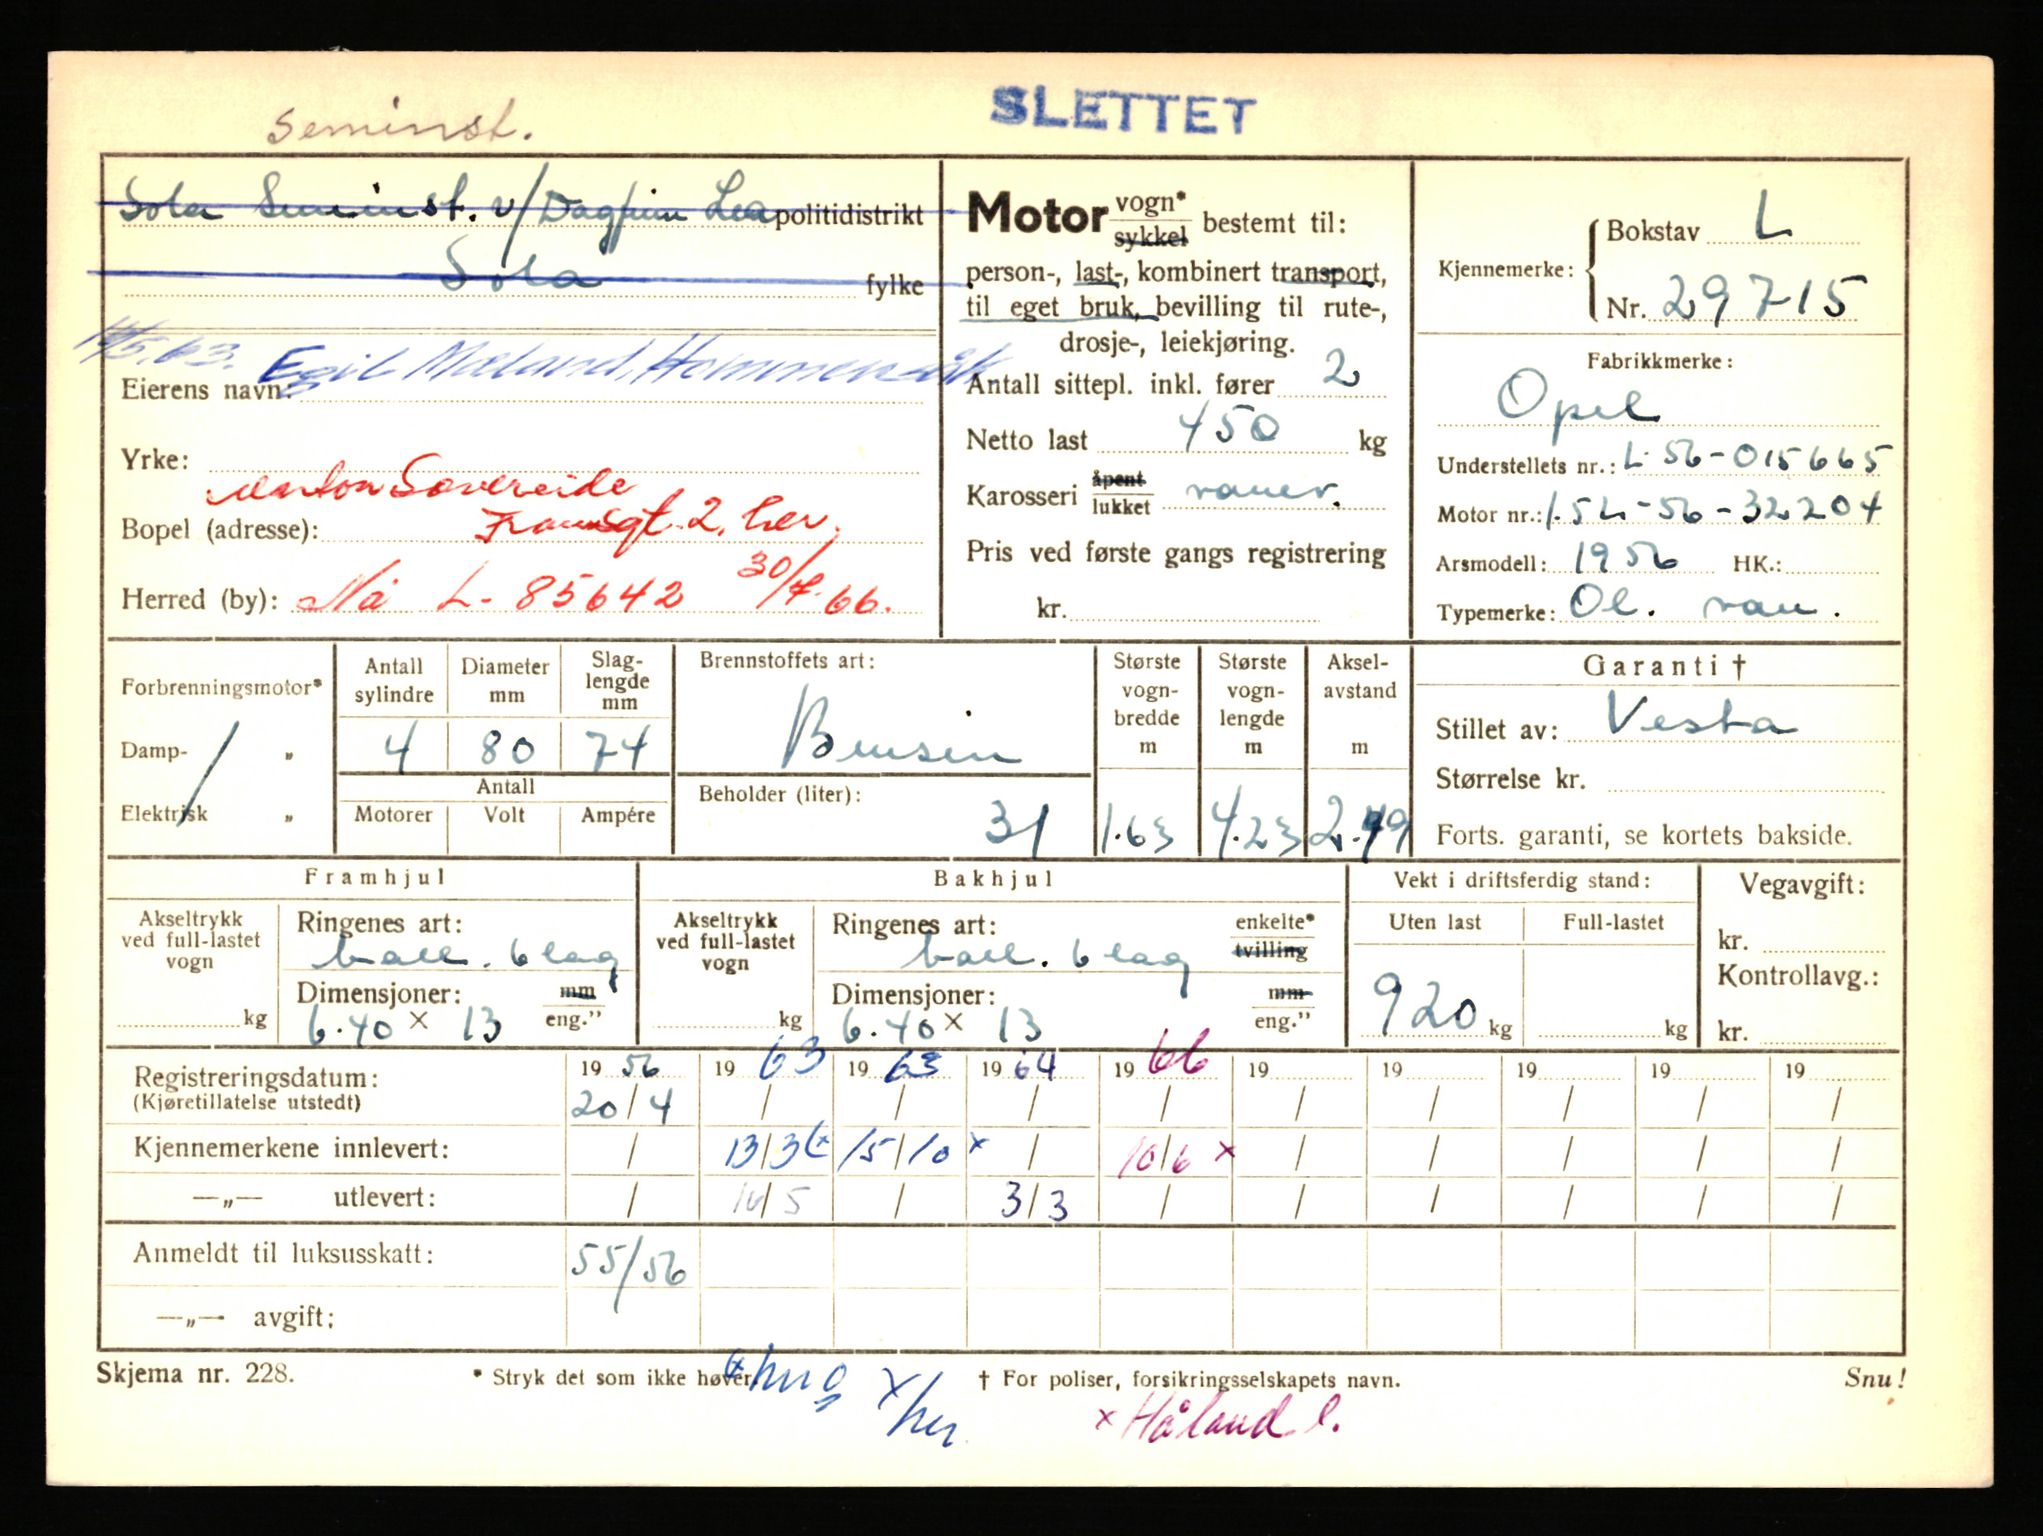 SLETTET
Seminst.
Sola Seminst. v/ Dagfinn Lea politidistrikt
Sola fylke
Eierens navn: Egil Mæland, Hommersåk
Yrke:
Sævereide
Bopel (adresse): 2, her.
Herred (by): Nå L-85642 30/4-66.
Motor vogn* sykkel bestemt til:
person-, last-, kombinert transport,
til eget bruk, bevilling til rute-,
drosje-, leiekjøring.
Antall sittepl. inkl. fører 2
Netto last 450 kg
Karosseri åpent lukket varev.
Pris ved første gangs registrering
kr.
Kjennemerke: Bokstav L
Nr. 29715
Fabrikkmerke:
Opel
Understellets nr.: L-56-015665
Motor nr.: 1.5L-56-32204
Arsmodell: 1956 HK.:
Typemerke: Ol. van.
Forbrenningsmotor*
Damp- „
Elektrisk „
Antall sylindre
Diameter mm
Slag-lengde mm
4 80 74
Antall
Motorer Volt Ampére
Brennstoffets art:
Bensin
Beholder (liter):
31
Største vogn-bredde m
1.63
Største vogn-lengde m
4.23
Aksel-avstand m
2.49
Garanti †
Stillet av: Vesta
Størrelse kr.
Forts. garanti, se kortets bakside.
Framhjul
Akseltrykk ved full-lastet vogn
kg
Ringenes art:
ball. 6 lag
Dimensjoner: mm
6.40 x 13 eng.”
Bakhjul
Akseltrykk ved full-lastet vogn
kg
Ringenes art: enkelte*
ball. 6 lag tvilling
Dimensjoner: mm
6.40 x 13 eng.”
Vekt i driftsferdig stand:
Uten last Full-lastet
920 kg kg
Vegavgift:
kr.
Kontrollavg.:
kr.
Registreringsdatum: 19 56 19 63 19 63 19 64 19 66 19 19 19 19 19
(Kjøretillatelse utstedt) 20/4 / / / / / / / / /
Kjennemerkene innlevert: / 13/3 (x 15/10 x / 10/6 x / / / / /
—„— utlevert: / 14/5 / 3/3 / / / / / /
Anmeldt til luksusskatt: 55/56
—„— avgift:
Skjema nr. 228. * Stryk det som ikke høver. † For poliser, forsikringsselskapets navn. Snu!
x her
x Håland l.